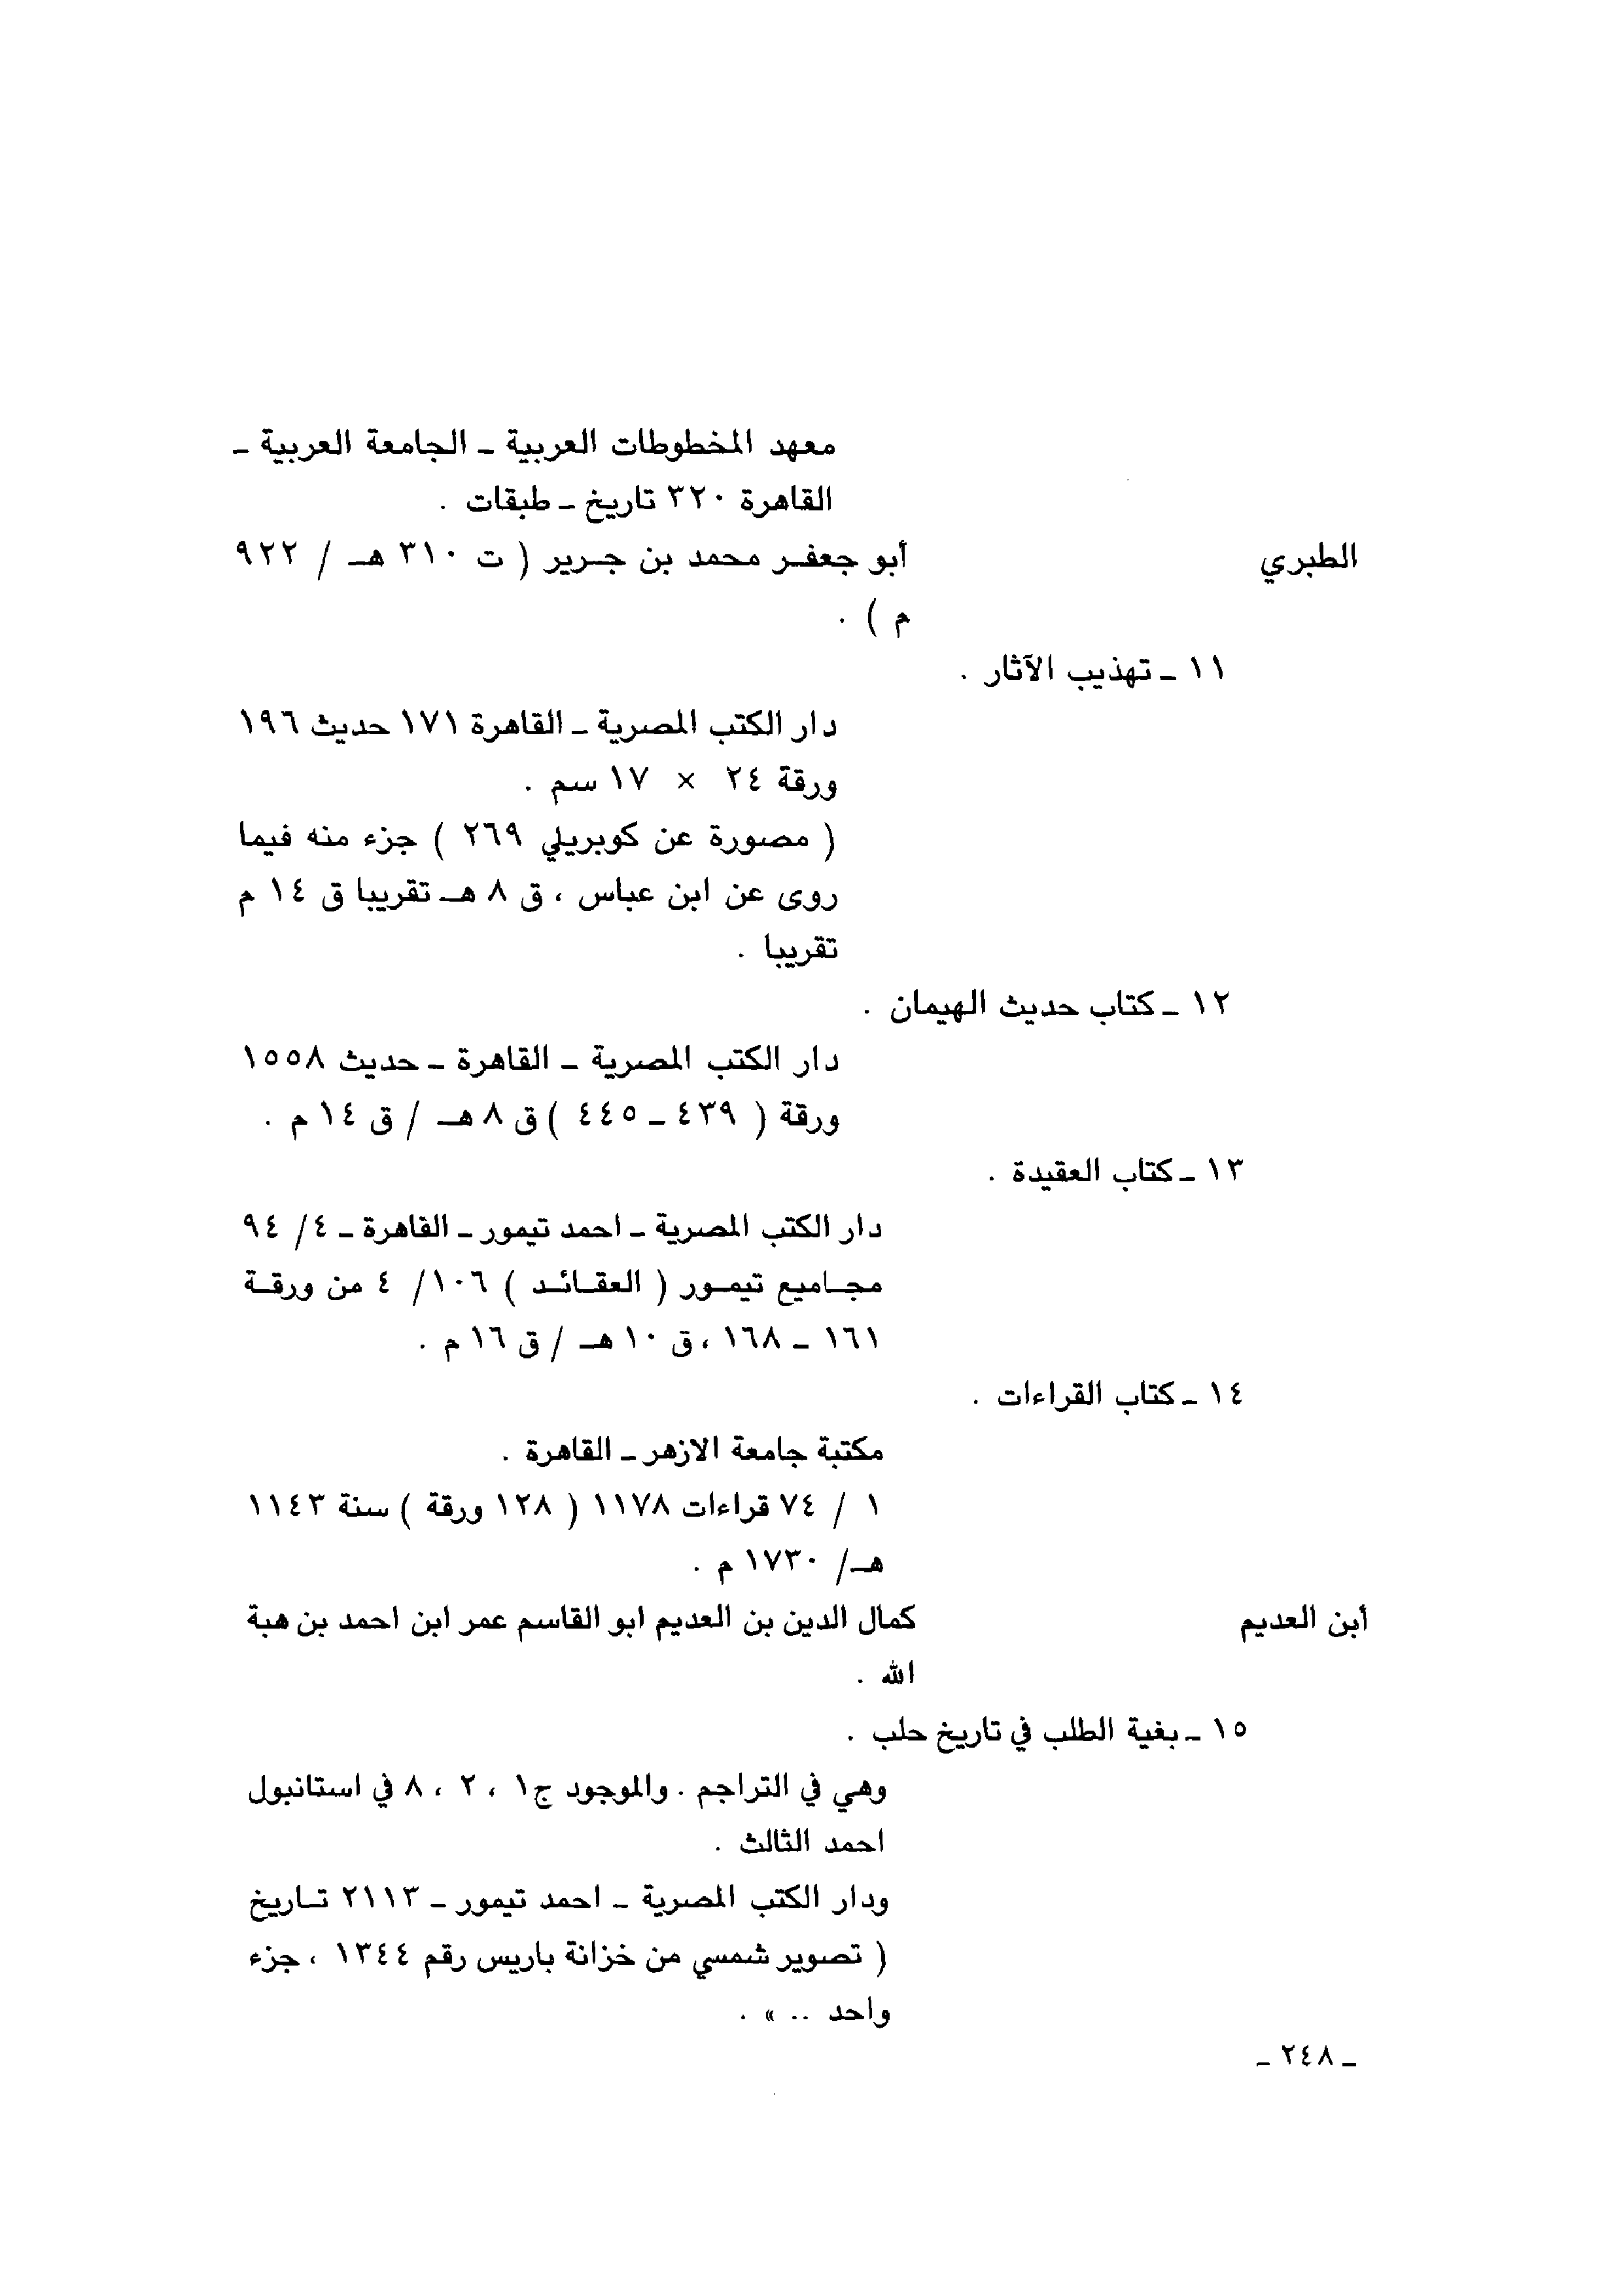 معهد المخطوطات العربية ـ الجامعة العربية ـ
القاهرة ٣٢٠ تاريخ ـ طبقات .
الطبري أبو جعفـر محمد بن جـرير ( ت ٣١٠ هـ / ٩٢٢
م ) .
١١ ـ تهذيب الآثار .
دار الكتب المصرية ـ القاهرة ١٧١ حديث ١٩٦
ورقة ٢٤ × ١٧ سم .
( مصورة عن كوبريلي ٢٦٩ ) جزء منه فيما
روى عن ابن عباس ، ق ٨ هـ تقريبا ق ١٤ م
تقريبا .
١٢ ـ كتاب حديث الهيمان .
دار الكتب المصرية ـ القاهرة ـ حديث ١٥٥٨
ورقة ( ٤٣٩ ـ ٤٤٥ ) ق ٨ هـ / ق ١٤ م .
١٣ ـ كتاب العقيدة .
دار الكتب المصرية ـ احمد تيمور ـ القاهرة ـ ٤/ ٩٤
مجـاميع تيمـور ( العقـائـد ) ١٠٦/ ٤ من ورقـة
١٦١ ـ ١٦٨ ، ق ١٠ هـ / ق ١٦ م .
١٤ ـ كتاب القراءات .
مكتبة جامعة الازهر ـ القاهرة .
١ / ٧٤ قراءات ١١٧٨ ( ١٢٨ ورقة ) سنة ١١٤٣
هـ/ ١٧٣٠ م .
أبن العديم كمال الدين بن العديم ابو القاسم عمر ابن احمد بن هبة
الله .
١٥ ـ بغية الطلب في تاريخ حلب .
وهي في التراجم . والموجود ج١ ، ٢ ، ٨ في استانبول
احمد الثالث .
ودار الكتب المصرية ـ احمد تيمور ـ ٢١١٣ تـاريخ
( تصوير شمسي من خزانة باريس رقم ١٣٤٤ ، جزء
واحد .. » .
ـ ٢٤٨ ـ